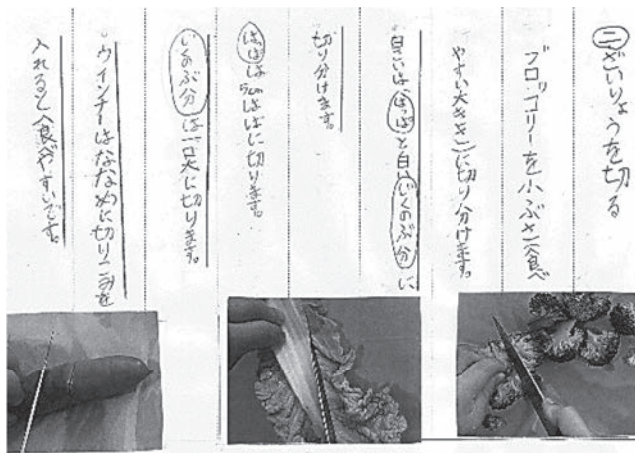 ㊁ざいりょうを切る
ブロッコリーを小ぶさ(食べ
やすい大きさ)に切り分けます。
白さいは、はっぱと白いじくのぶ分に
切り分けます。
はっぱは5cmはばに切ります。
じくのぶ分は一口大に切ります。
ウインナーはななめに切りこみを
入れると食べやすいです。